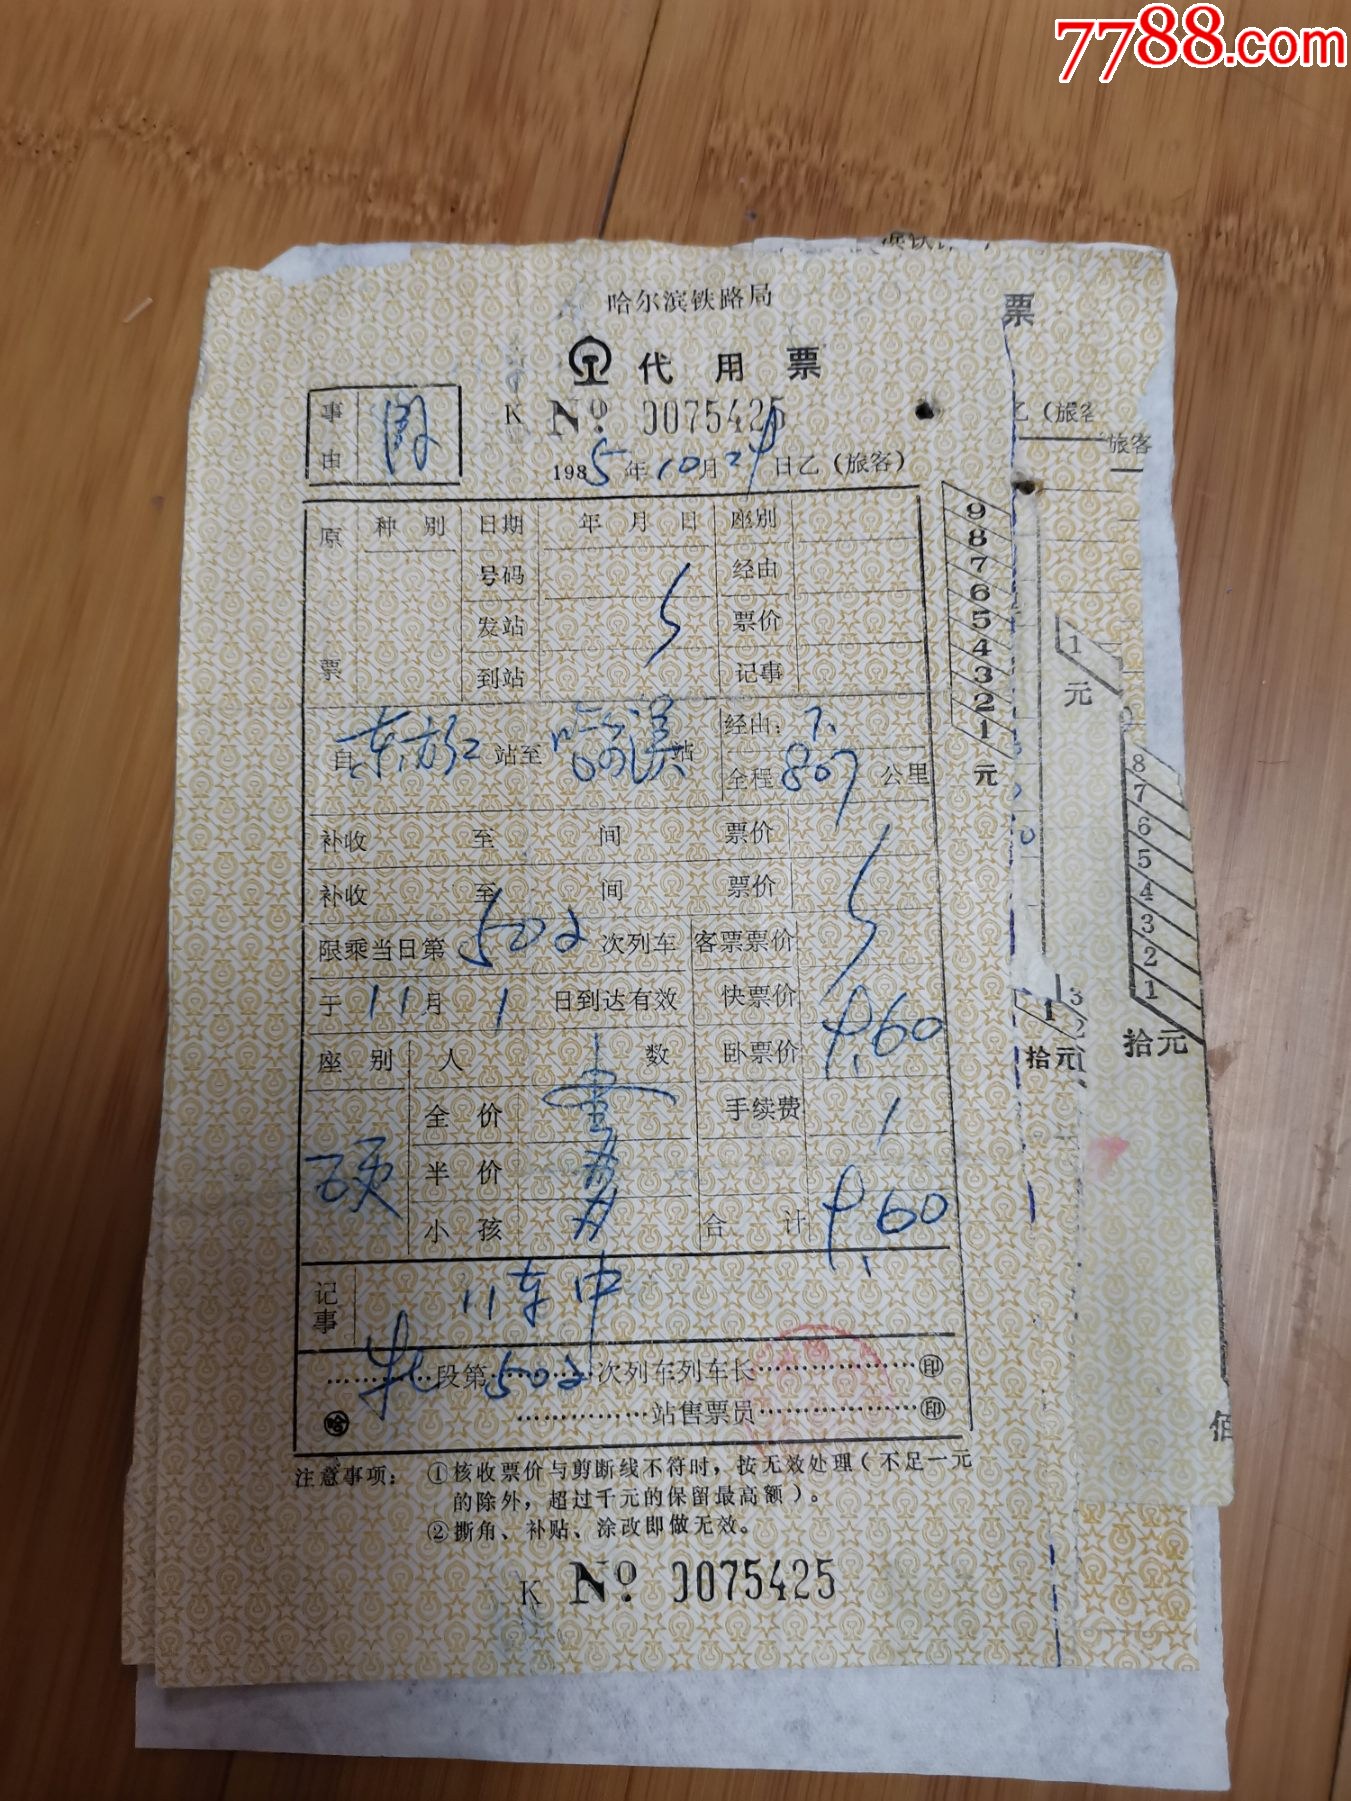 7788.com
哈尔滨铁路局
代用票
事由
K No 0075425
1985年10月24日乙(旅客)
原票 种别 日期 年 月 日 座别
号码 经由
发站 票价
到站 记事
自东方红站至 站 经由:
全程807公里
补收 至 间 票价
补收 至 间 票价
限乘当日第502次列车 客票票价
于11月1日到达有效 快票价
座别 人数 卧票价 4.60
全价 壹 手续费
硬 半价
小孩 合计 4.60
记事 11车中
段第502次列车列车长 印
哈 站售票员 印
注意事项: ①核收票价与剪断线不符时,按无效处理(不足一元
的除外,超过千元的保留最高额)。
②撕角、补贴、涂改即做无效。
K No 0075425
9
8
7
6
5
4
3
2
1
元
票
乙(旅客
旅客
1
元
1
拾元
8
7
6
5
4
3
2
1
拾元
佰